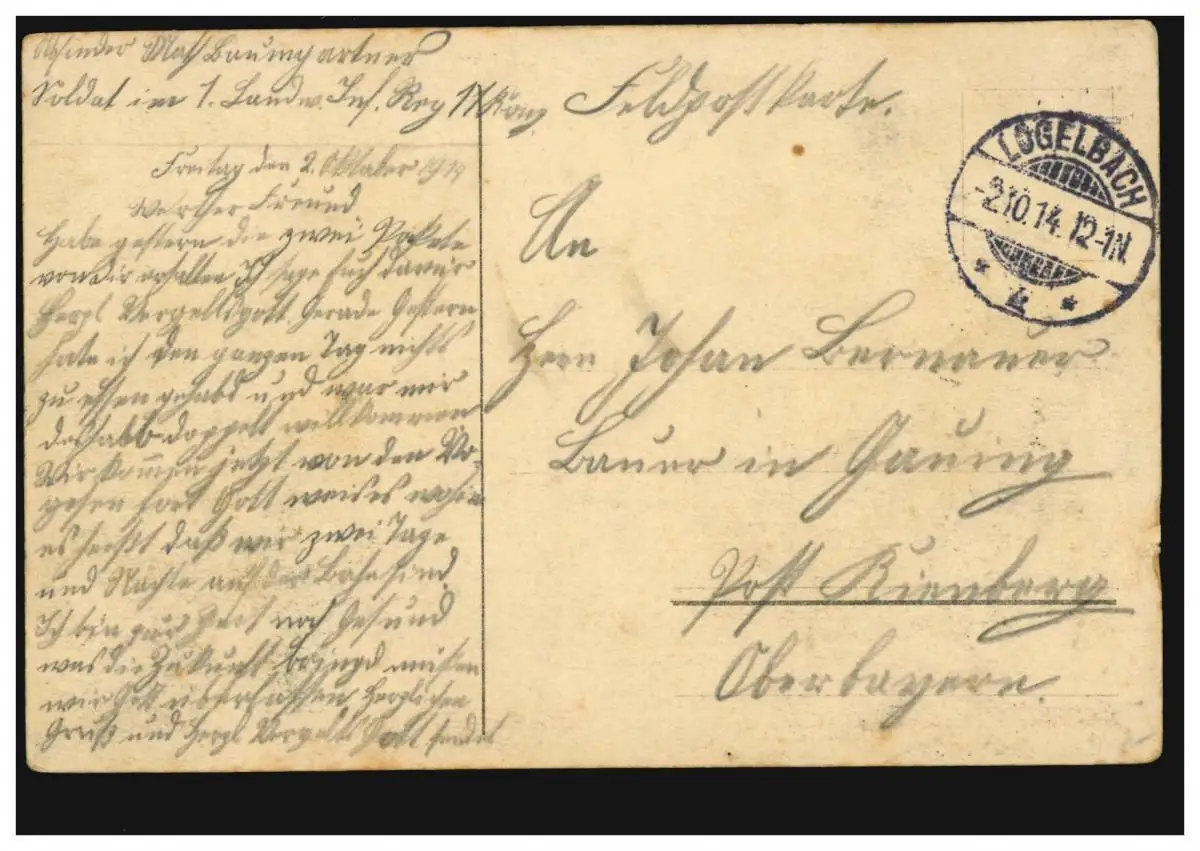 Absender Math Baumgartner
Soldat im 1. Landw. Inf. Reg 11 Komp
Feldpostkarte.
LOGELBACH
-2.10.14.12-1N.
* *
Freitag den 2. Oktober 1914
Werther Freund
Habe gestern die zwei Pakete
von Dir erhalten Ich sage Euch dafür
Herzl Vergeltsgott. Gerade Gestern
hate ich den ganzen Tag nichts
zu essen gehabt und war mir
deshalb doppelt willkommen
Wir kommen jetzt von den Vo-
gesen fort Gott weis es wohin
es heißt daß wir zwei Tage
und Nächte auf der Bahn sind.
Ich bin zur Zeit noch Gesund
was die Zukunft bringd müssen
wir Gott überlassen. Herzlichen
Gruß und Herzl Vergelts Gott sendet
An
Herrn Johan Bernauer
Bauer in Gauing
Post Kienberg
Oberbayern.